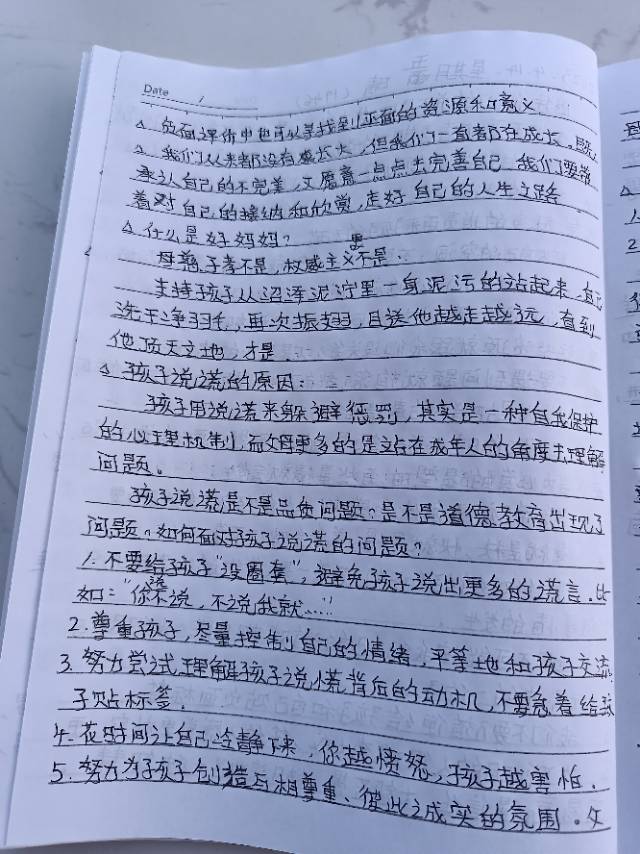 Date /
△ 负面评价中也可以寻找到正面的资源和意义
△ 我们从来都没有真长大，但我们一直都在成长。既
承认自己的不完美，又愿意一点点去完善自己，我们要带
着对自己的接纳和欣赏，走好自己的人生之路
△ 什么是好妈妈？
母慈子孝不是，权威主义更不是。
支持孩子从沼泽泥泞里一身泥污的站起来，自己
洗干净羽毛，再次振翅，目送他越走越远，直到
他顶天立地，才是。
△ 孩子说谎的原因：
孩子用说谎来躲避惩罚，其实是一种自我保护
的心理机制，而父母更多的是站在成年人的角度去理解
问题。
孩子说谎是不是品质问题？是不是道德教育出现了
问题？如何面对孩子说谎的问题？
1. 不要给孩子“设圈套”，避免孩子说出更多的谎言。比
如：“你说不说，不说我就……”
2. 尊重孩子，尽量控制自己的情绪，平等地和孩子交流
3. 努力尝试理解孩子说慌背后的动机，不要急着给孩
子贴标签。
4. 花时间让自己冷静下来，你越愤怒，孩子越害怕。
5. 努力为孩子创造互相尊重、彼此诚实的氛围。父